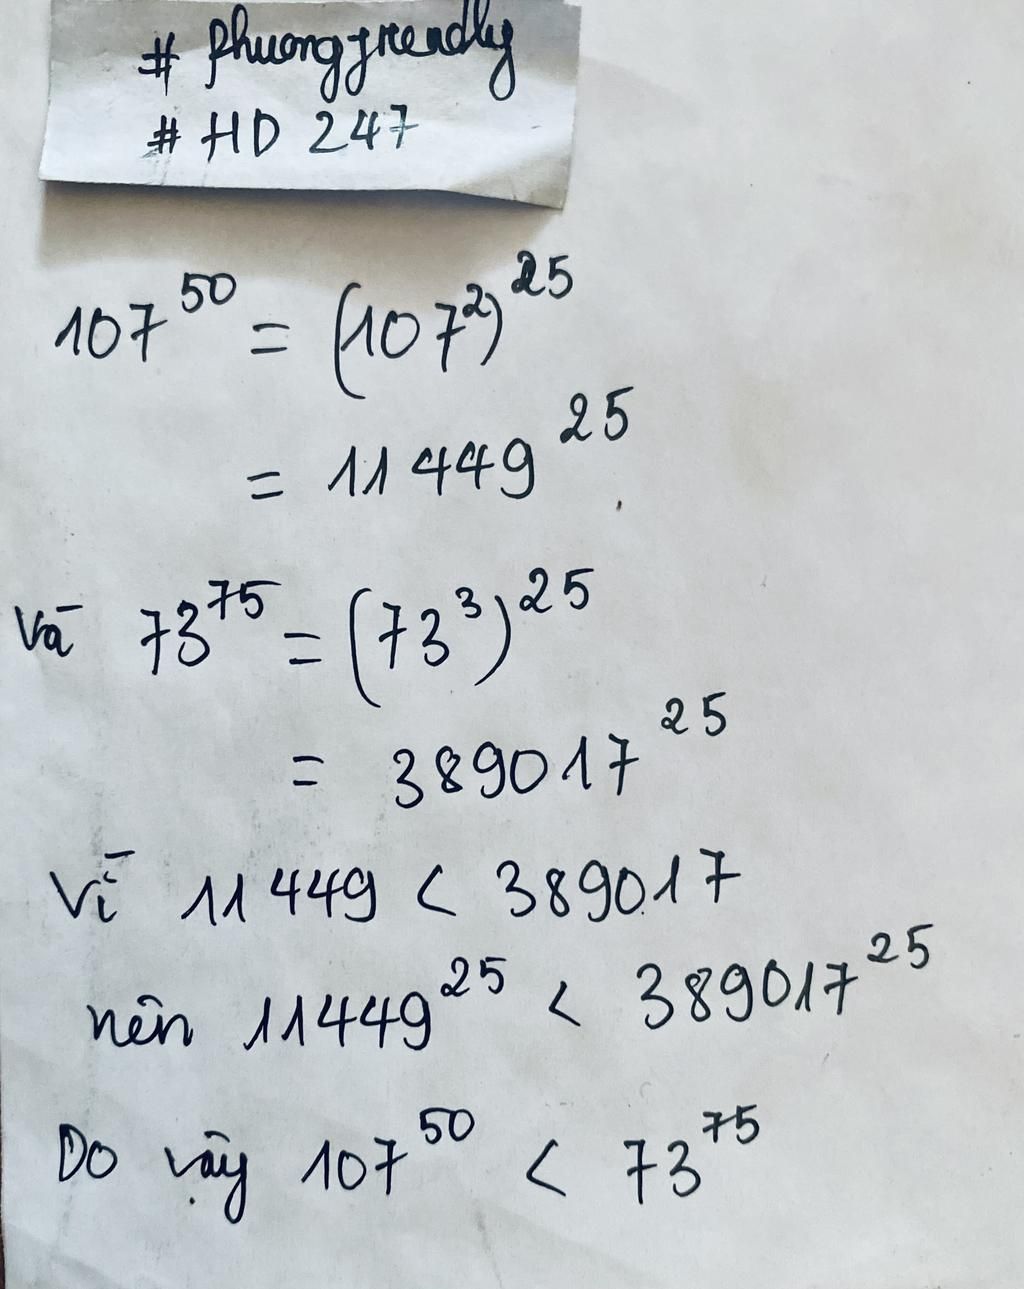 # Phuongfriendly
# HD 247
107^50 = (107^2)^25
= 11449^25
Và 73^75 = (73^3)^25
= 389017^25
Vì 11449 < 389017
nên 11449^25 < 389017^25
Do vậy 107^50 < 73^75